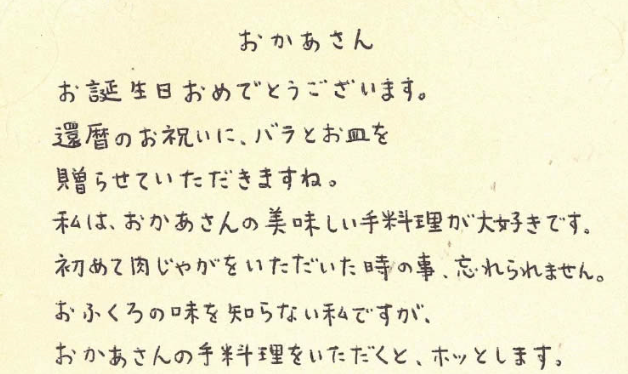 おかあさん
お誕生日おめでとうございます。
還暦のお祝いに、バラとお皿を
贈らせていただきますね。
私は、おかあさんの美味しい手料理が大好きです。
初めて肉じゃがをいただいた時の事、忘れられません。
おふくろの味を知らない私ですが、
おかあさんの手料理をいただくと、ホッとします。